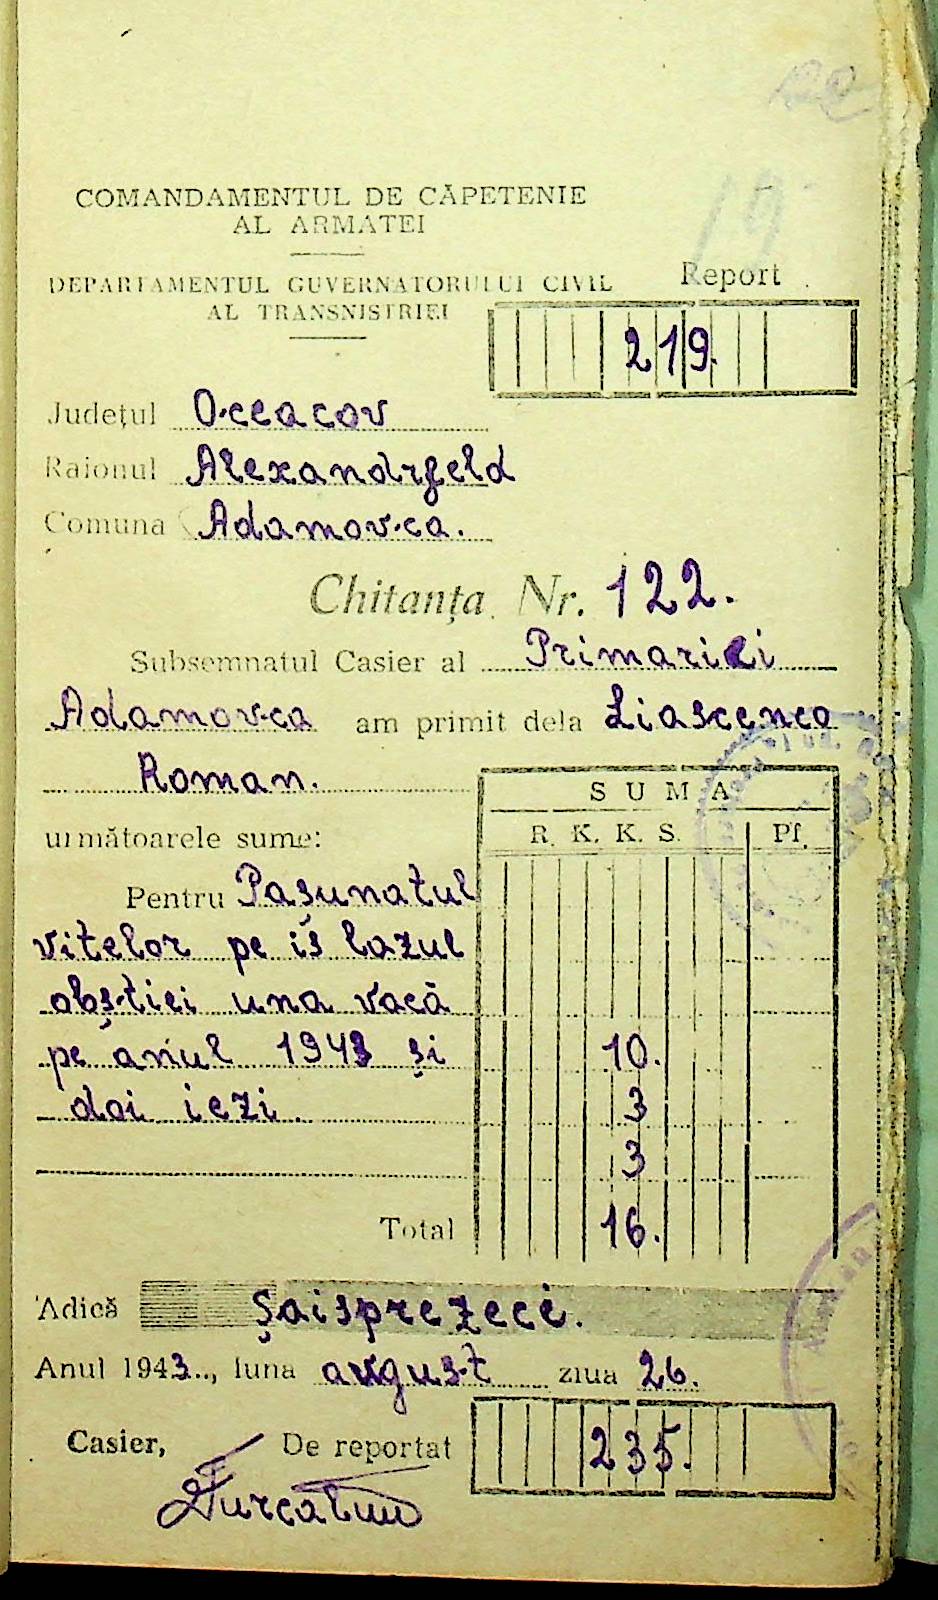 COMANDAMENTUL DE CĂPETENIE
AL ARMATEI
DEPARTAMENTUL GUVERNATORULUI CIVIL
AL TRANSNISTRIEI
19
Report
219.
Județul Oceacov
Raionul Alexandrfeld
Comuna Adamovca.
Chitanța Nr. 122.
Subsemnatul Casier al Primariei
Adamovca am primit dela Liascenco
Roman.
următoarele sume:
SUMA
R. K. K. S. Pf.
Pentru Pașunatul
vitelor pe is lazul
obștiei una vacă
pe anul 1943 și 10.
doi iezi. 3
3
Total 16.
Adică Șaisprezece.
Anul 1943.., luna august ziua 26.
Casier, De reportat 235.